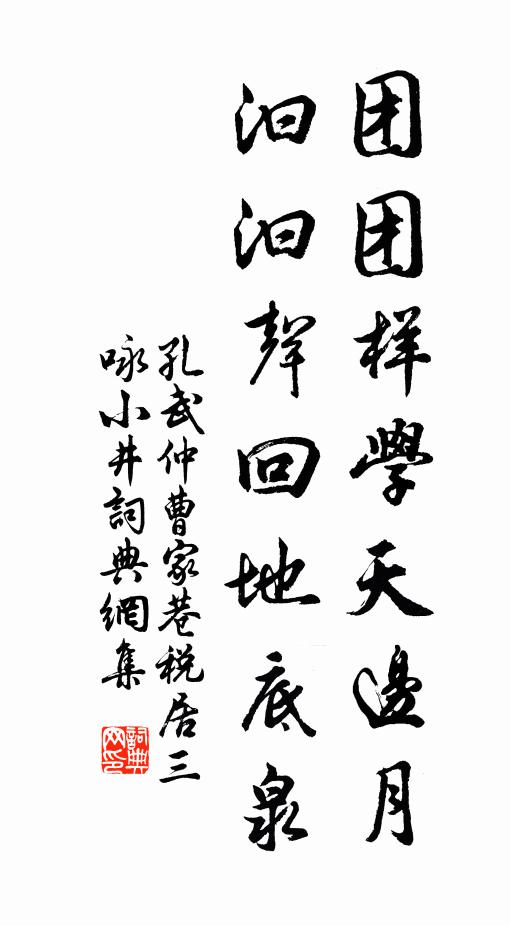 团团样學天邊月
汩汩聲回地底泉
孔武仲曹家巷税居三
咏小井詞典網集
詞典网印